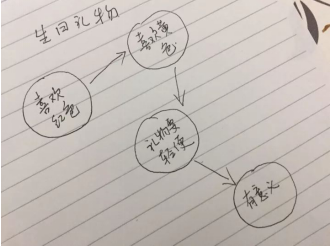 生日礼物
喜欢黄
色
喜欢
红色
礼物要
轻便
有意义